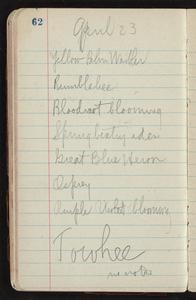 62
April 23
Yellow Palm Warbler
Bumblebee
Bloodroot blooming
Spring beauty
Great Blue Heron
Osprey
Purple Violet blooming
Towhee